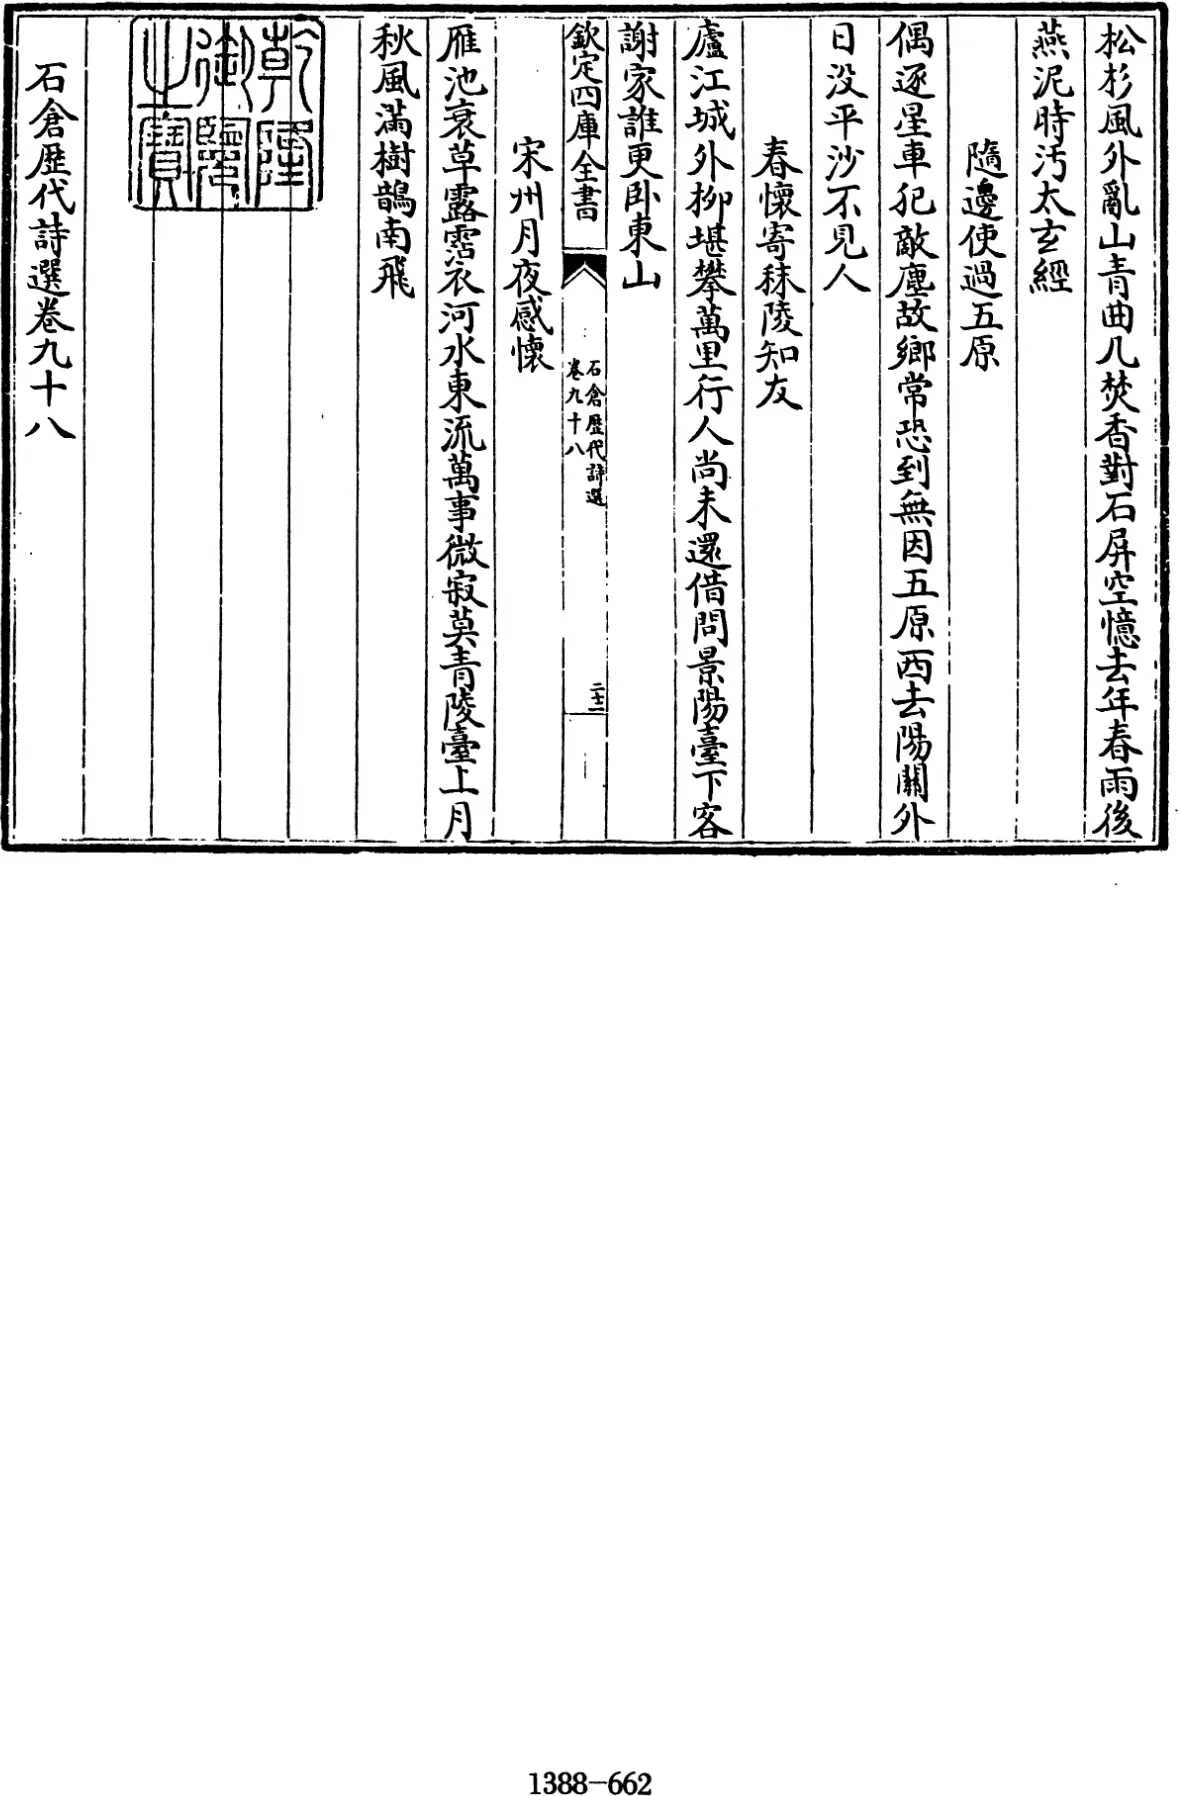 松杉風外亂山青曲几焚香對石屏空憶去年春雨後
燕泥時汚太玄經
隨邊使過五原
偶逐星車犯敵塵故鄉常恐到無因五原西去陽關外
日没平沙不見人
春懷寄秣陵知友
廬江城外柳堪攀萬里行人尚未還借問景陽臺下客
謝家誰更卧東山
欽定四庫全書
石倉歷代詩選
卷九十八
宋州月夜感懷
雁池衰草露霑衣河水東流萬事微寂莫青陵臺上月
秋風滿樹鵲南飛
乾隆御覽之寶
石倉歷代詩選卷九十八
1388-662